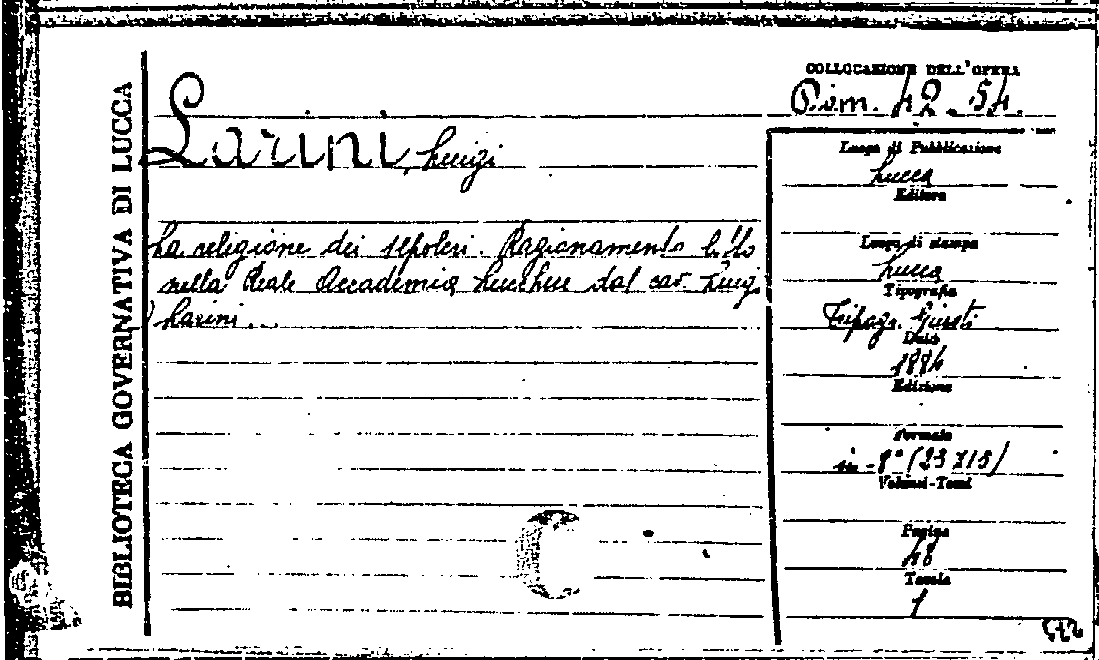 BIBLIOTECA GOVERNATIVA DI LUCCA
COLLOCAZIONE DELL'OPERA
Larini, Luigi
La religione dei sepolcri. Ragionamento letto
nella Reale Accademia Lucchese dal cav. Luigi
Larini...
Luogo di Pubblicazione
Lucca
Editore
Luogo di stampa
Lucca
Tipografia
Tipogr. Giusti
Data
Edizione
Formato
in-8° (23 x 15)
Volumi-Tomi
Pagine
Tavole
1